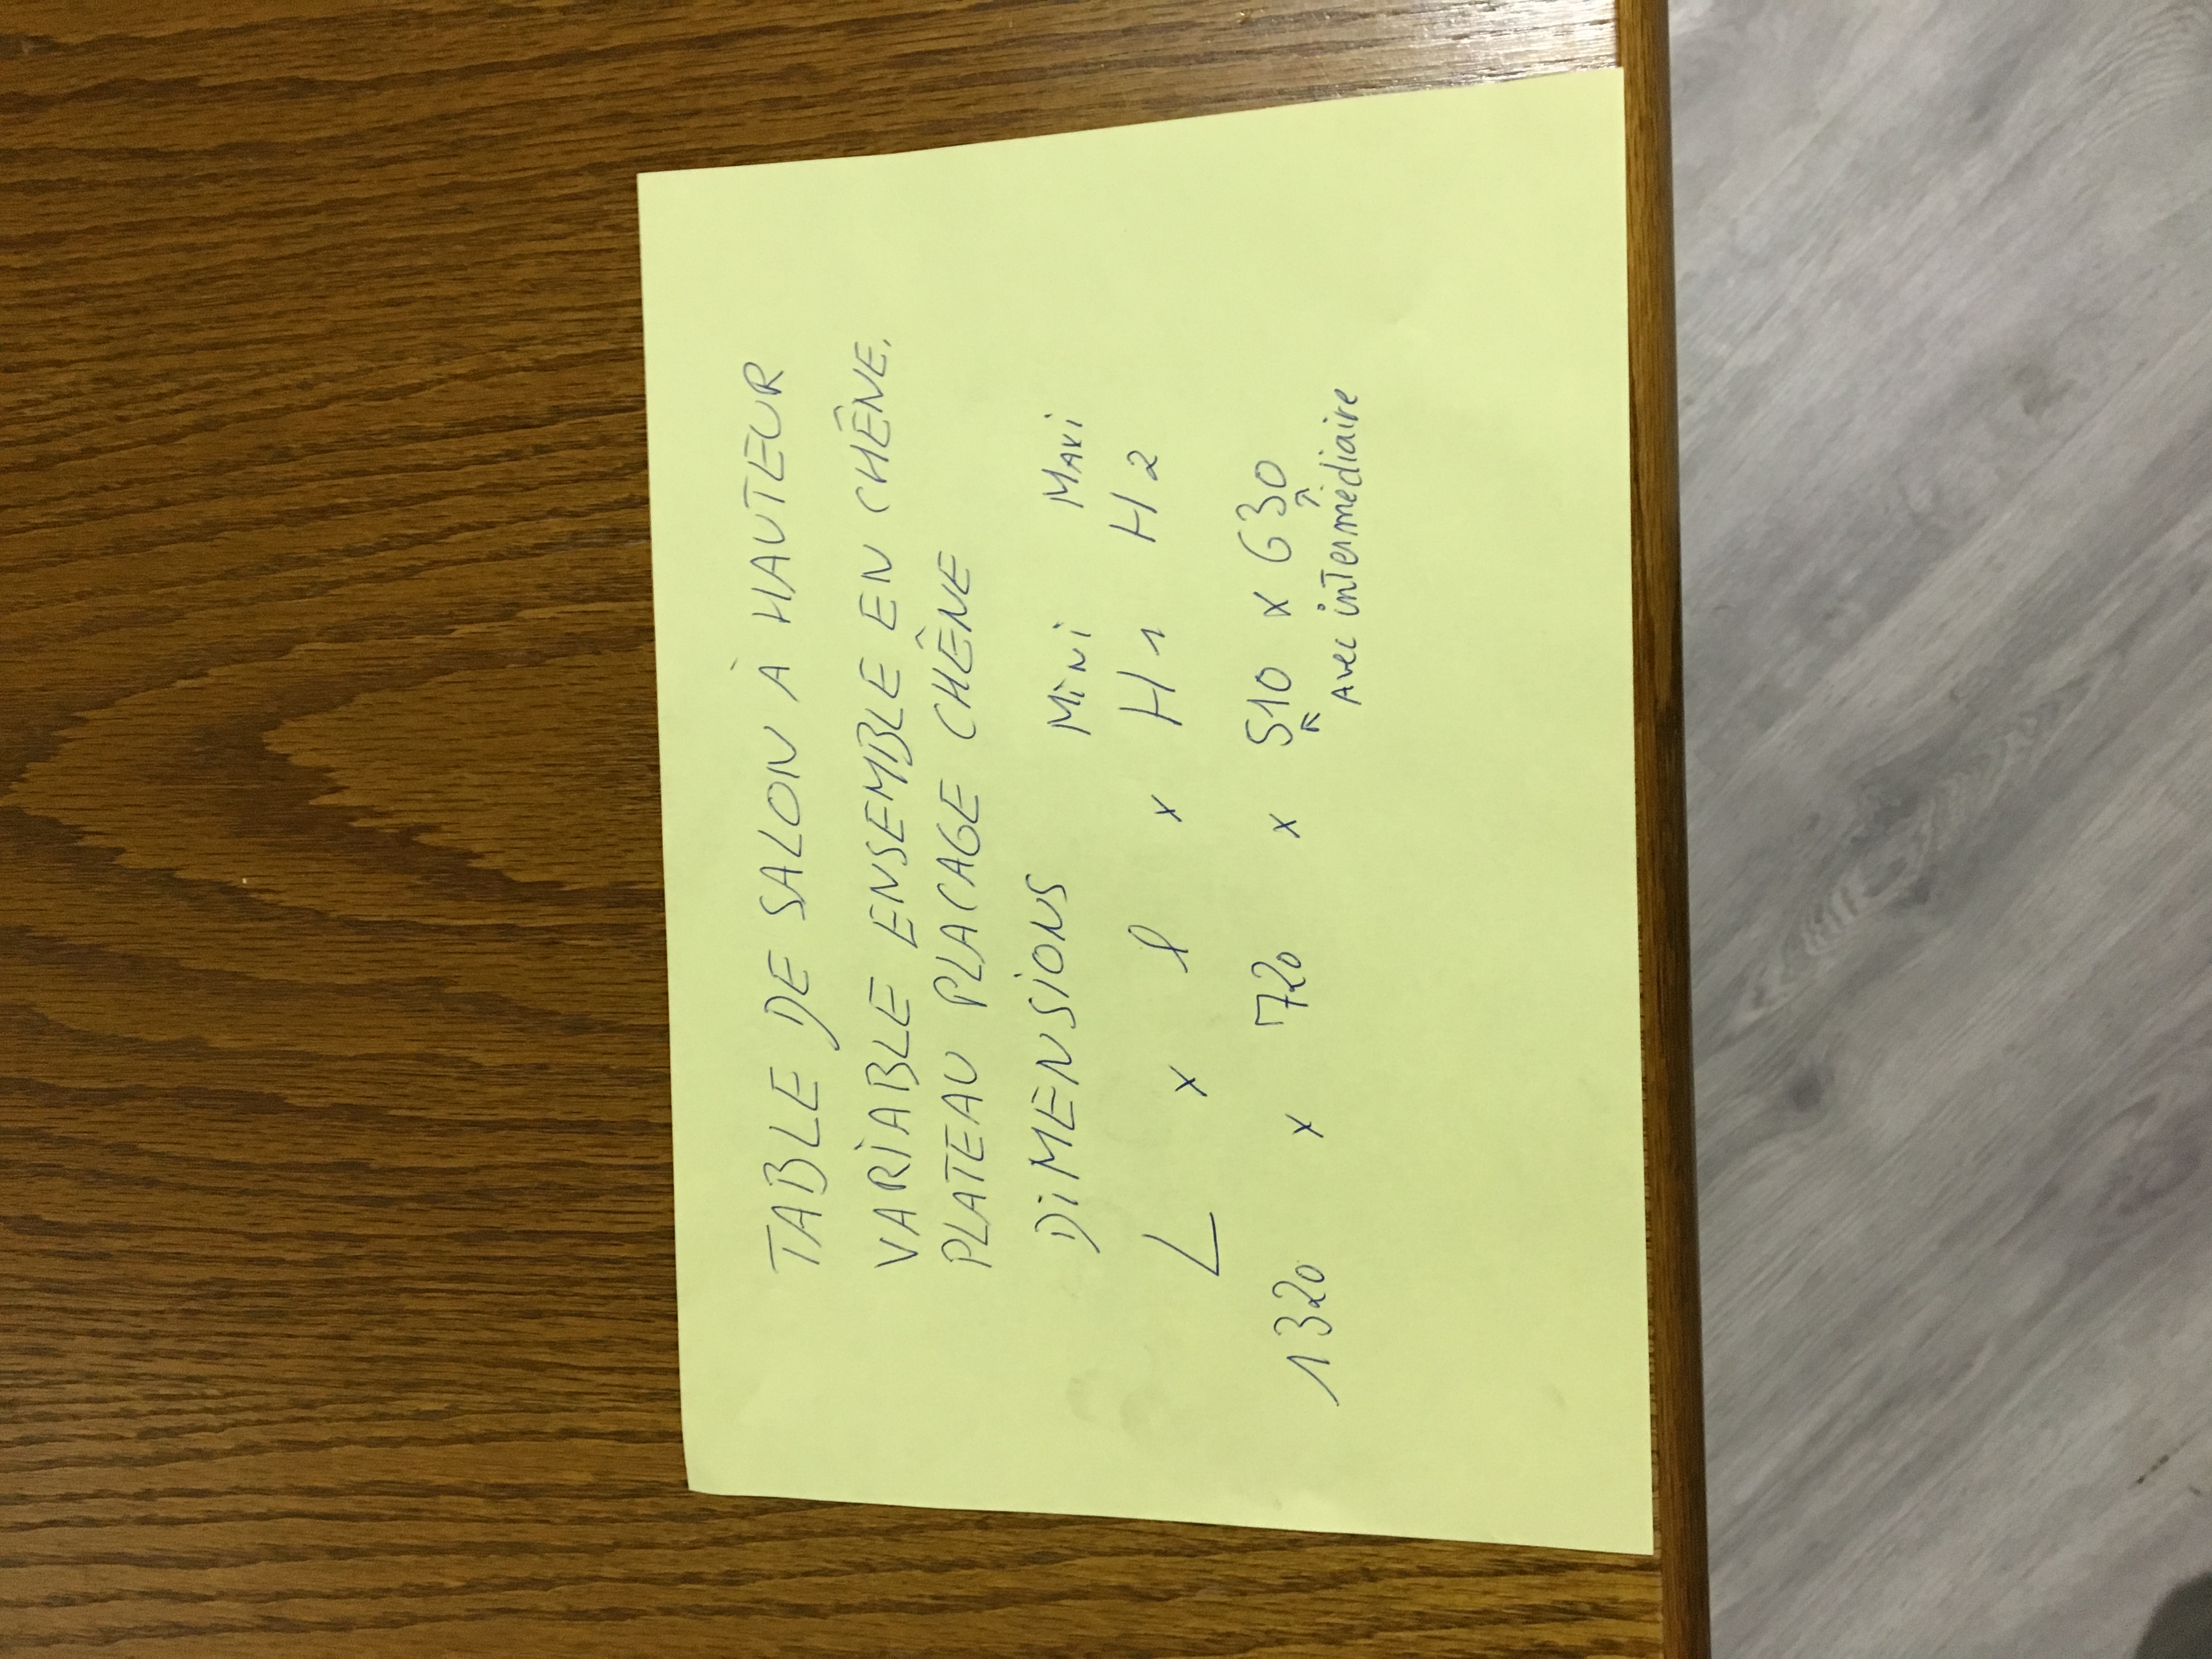 TABLE DE SALON À HAUTEUR
VARIABLE ENSEMBLE EN CHÊNE.
PLATEAU PLACAGE CHÊNE
DIMENSIONS Mini Maxi
L x l x H1 H2
1320 x 720 x 510 x 630
Avec intermédiaire